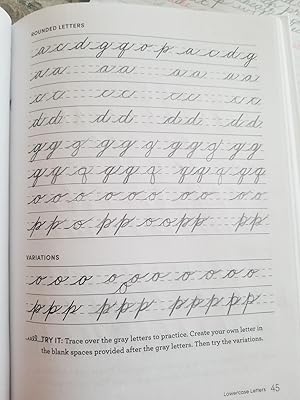 ROUNDED LETTERS
a c d g q o p a c d g
a a a a a a a a
c c c c c c c c
d d d d d d d d
g g g g g g g g g g
q q q q q q q q
o o o o o o o o o
p p o p p o o p p p p
VARIATIONS
o o o o o o o o o o
p p p p p p p p p p p
TRY IT: Trace over the gray letters to practice. Create your own letter in
the blank spaces provided after the gray letters. Then try the variations.
Lowercase Letters 45